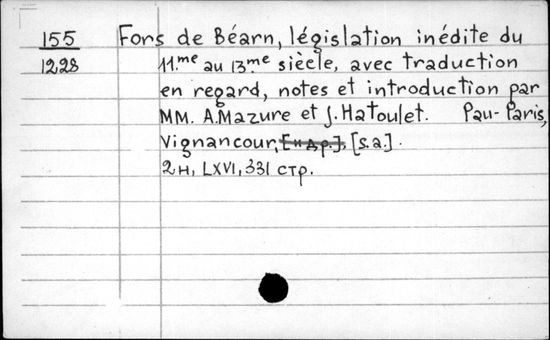 155 Fors de Béarn, législation inédite du
1228 11.me au 13.me siècle, avec traduction
en regard, notes et introduction par
MM. A. Mazure et J. Hatoulet. Pau-Paris,
Vignancour, [и др.], [s.a.].
2н, LXVI, 331 стр.